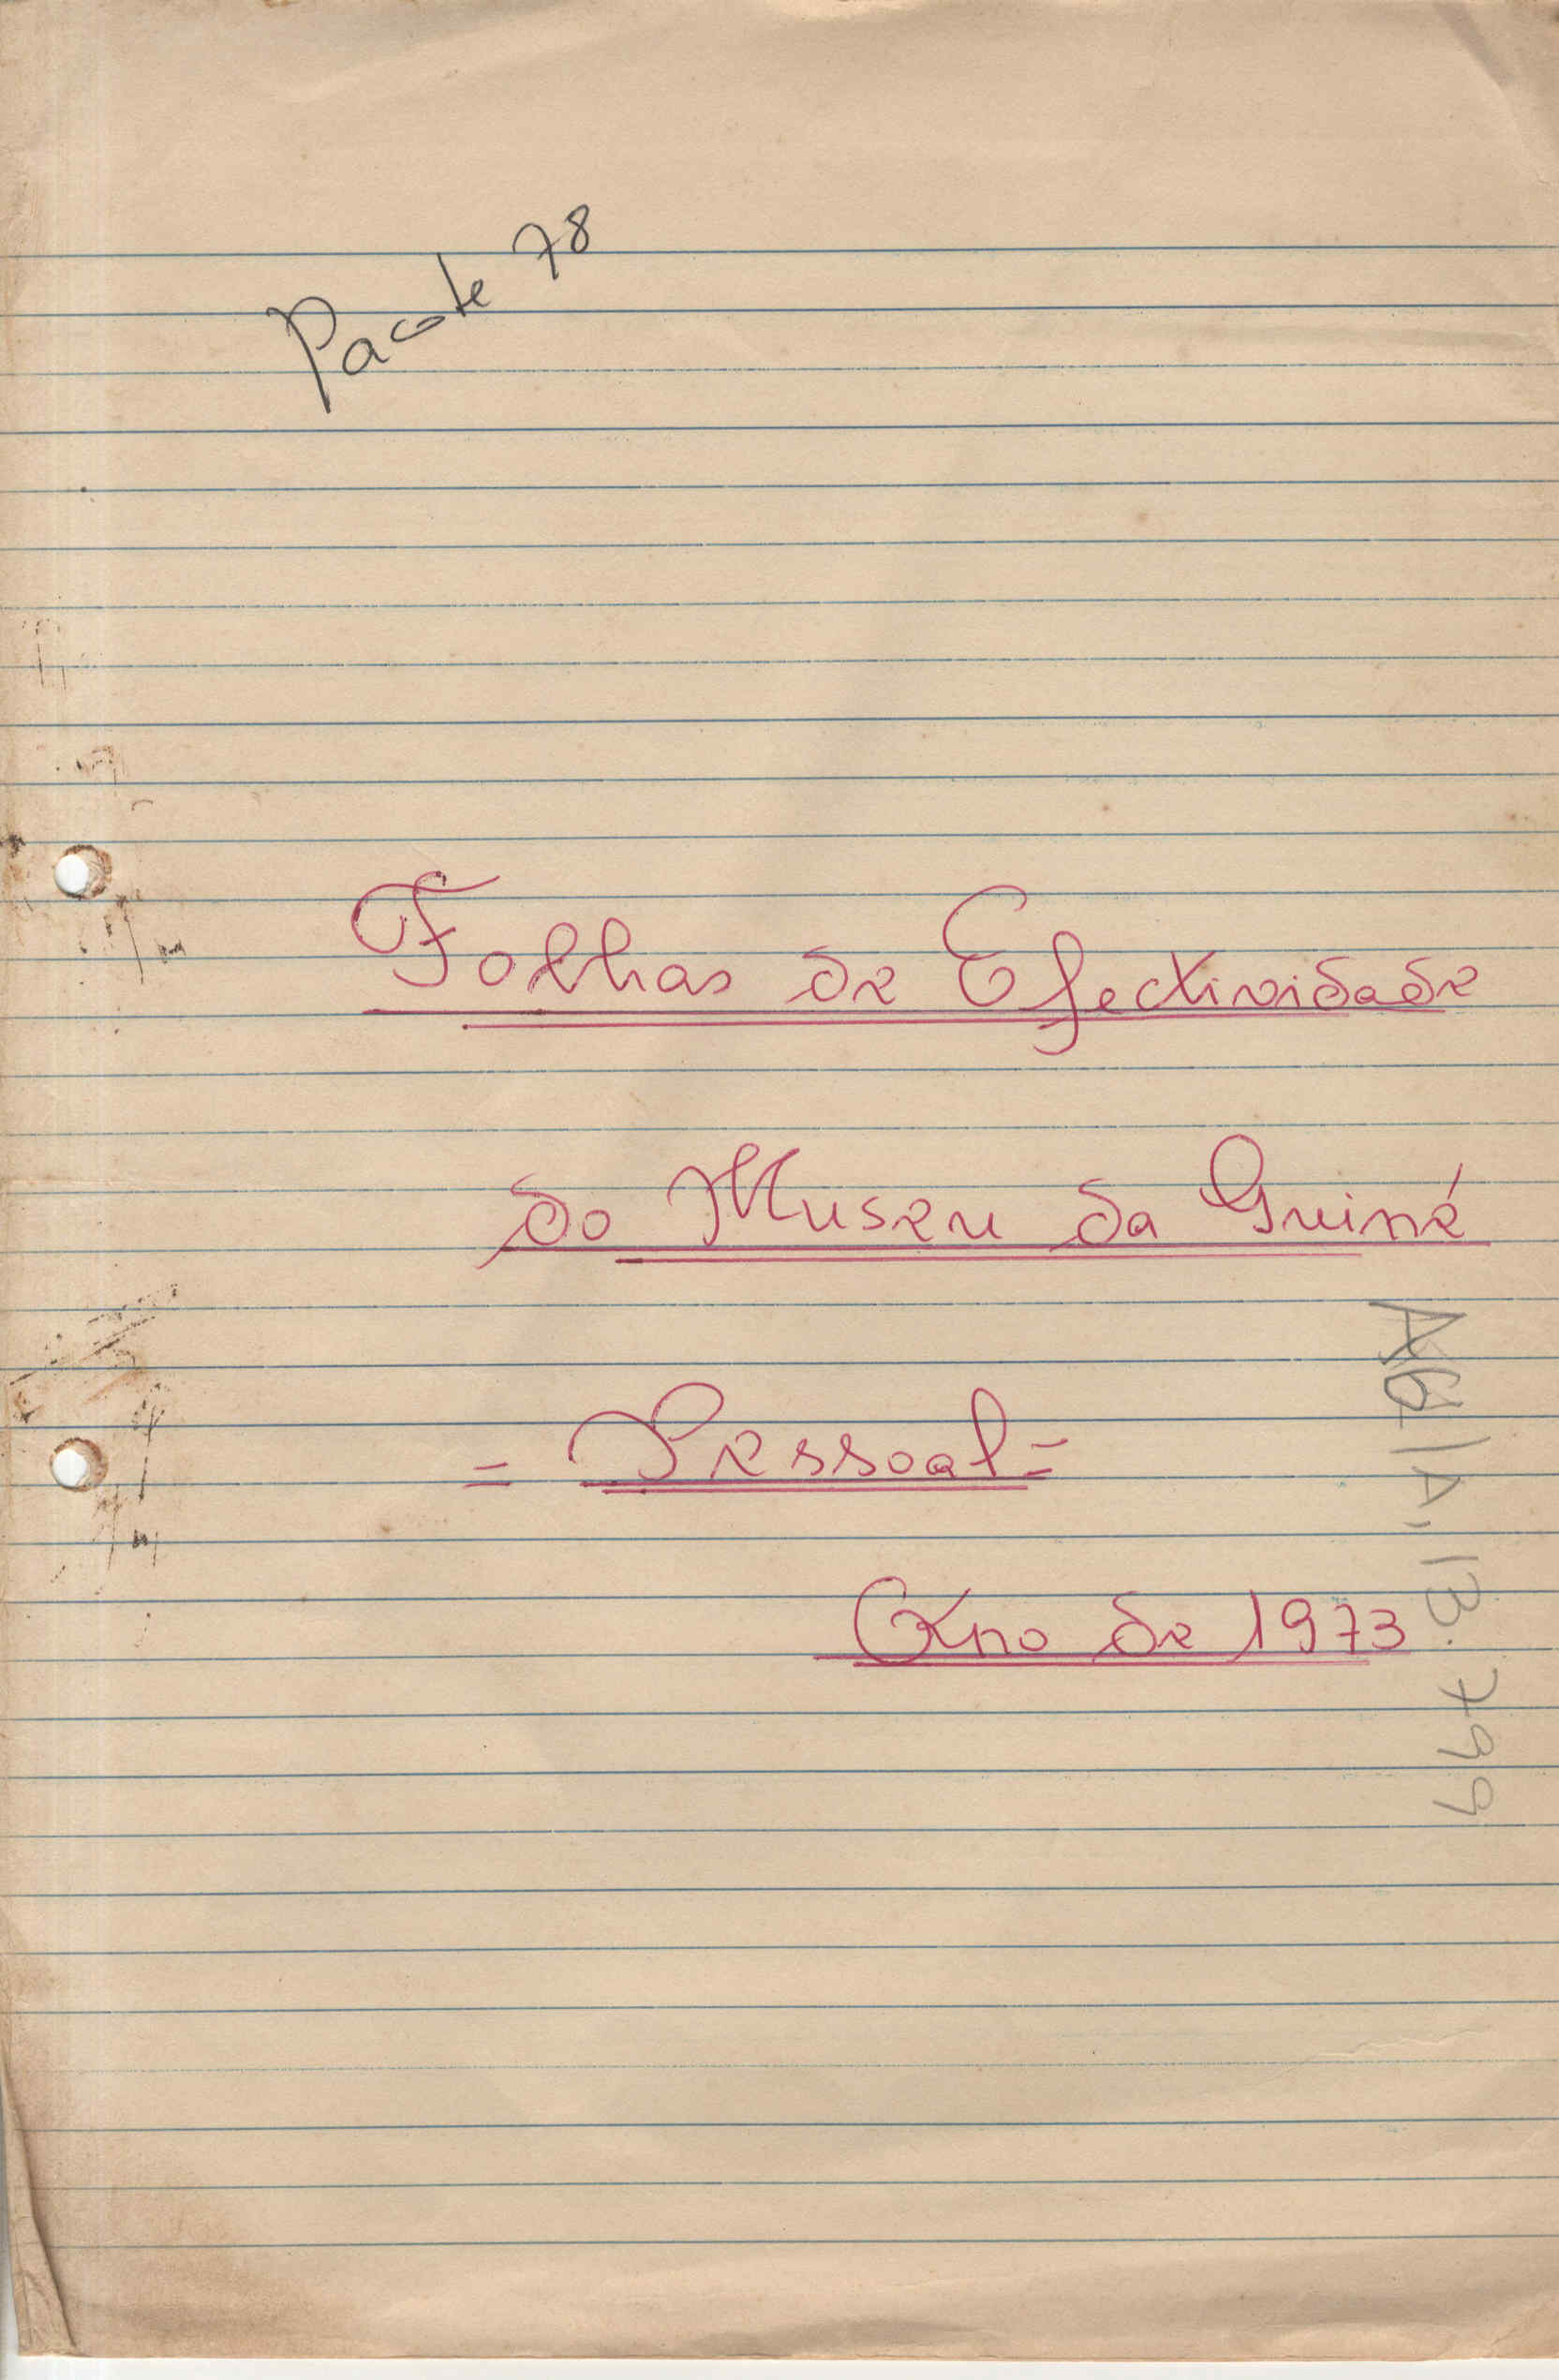 Pacote 78
Folhas de Efectividade
do Museu da Guiné
= Pessoal =
Ano de 1973
A6/A,13.799